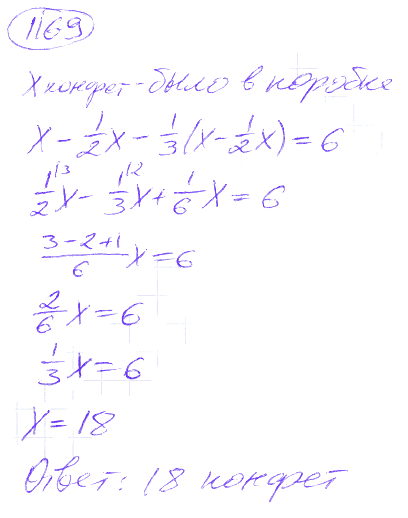 1169
X конфет - было в коробке
X - 1/2 X - 1/3 (X - 1/2 X) = 6
1/2 ^{/3} X - 1/3 ^{/2} X + 1/6 X = 6
(3-2+1)/6 X = 6
2/6 X = 6
1/3 X = 6
X = 18
Ответ: 18 конфет